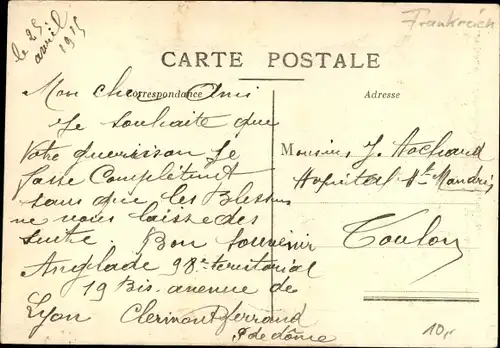 le 25
avril
1915
Frankreich
CARTE POSTALE
Correspondance
Adresse
Mon cher Ami
Je souhaite que
Votre guerrison Se
fasse Complètement
sans que les Blessures
ne vous laisse des
suite. Bon souvenir
Anglade 98e territorial
19 Bis avenue de
Lyon Clermont ferrand
P de dôme
Monsieur J. Hochard
Hopital St Mandrier
Toulon
10,-